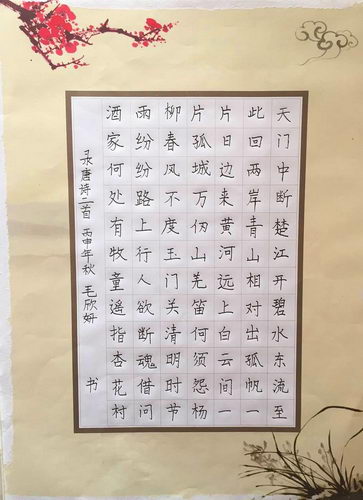 天门中断楚江开碧水东流至
此回两岸青山相对出孤帆一
片日边来黄河远上白云间一
片孤城万仞山羌笛何须怨杨
柳春风不度玉门关清明时节
雨纷纷路上行人欲断魂借问
酒家何处有牧童遥指杏花村
录唐诗三首 丙申年秋 毛欣妍 书